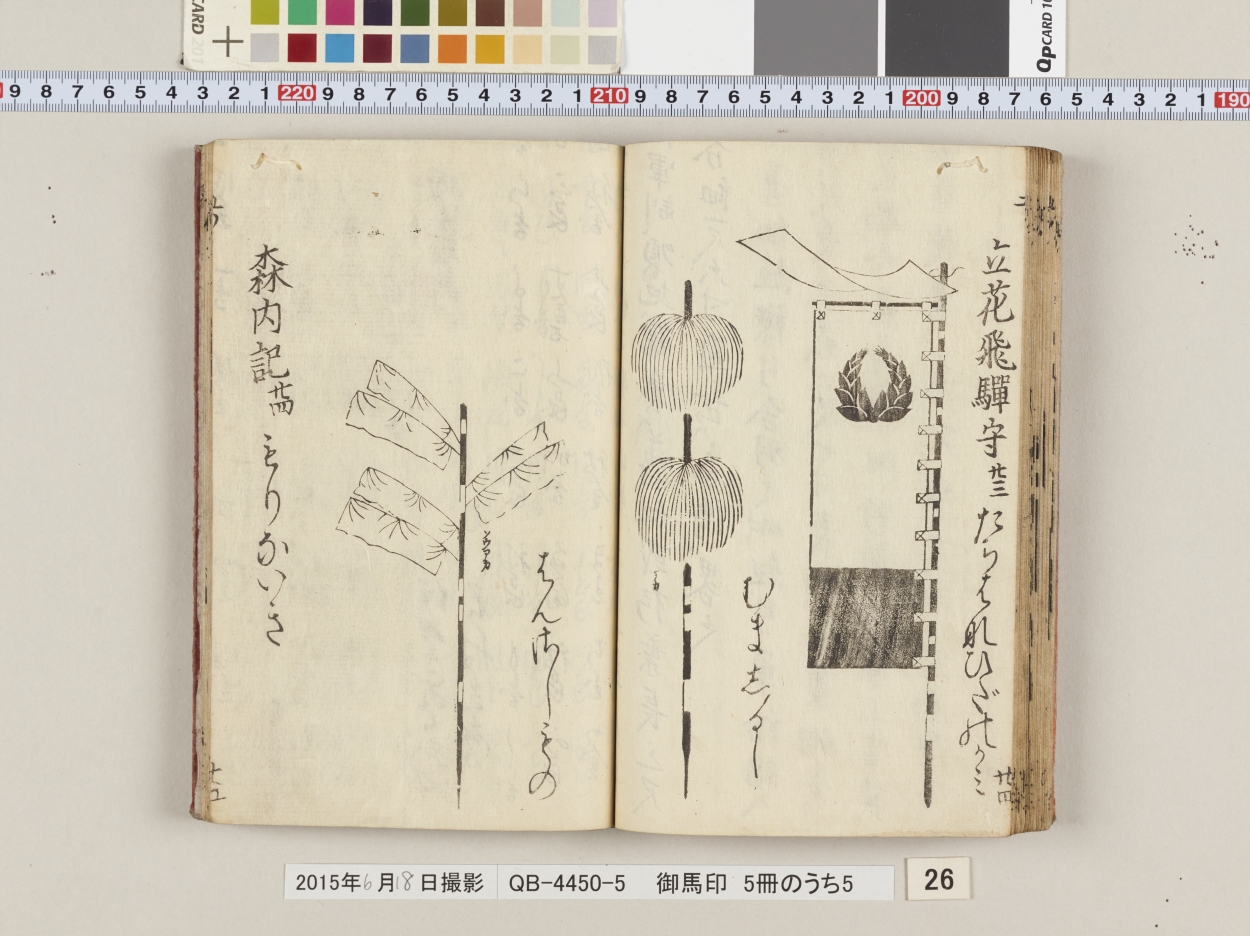 9 8 7 6 5 4 3 2 1 220 9 8 7 6 5 4 3 2 1 210 9 8 7 6 5 4 3 2 1 200 9 8 7 6 5 4 3 2 1 190
QPCARD 10
立花飛驒守 廿三 たちはなひだのかみ
むましるし
廿四
はんさしもの
森内記 廿四 もりないき
2015年6月18日撮影 QB-4450-5 御馬印 5冊のうち5
26